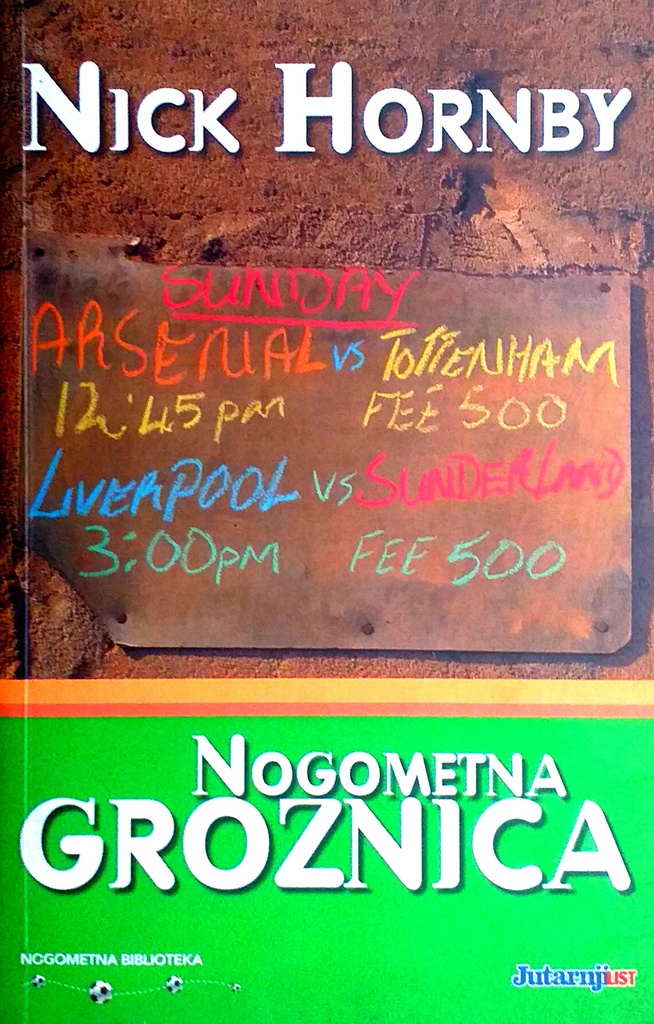 NICK HORNBY
SUNDAY
ARSENAL VS TOTTENHAM
12:45 pm FEE 500
LIVERPOOL VS SUNDERLAND
3:00 PM FEE 500
NOGOMETNA
GROZNICA
NOGOMETNA BIBLIOTEKA
Jutarnji LIST